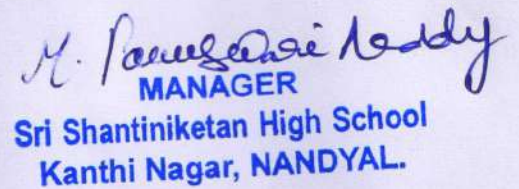 M. Reddy
MANAGER
Sri Shantiniketan High School
Kanthi Nagar, NANDYAL.